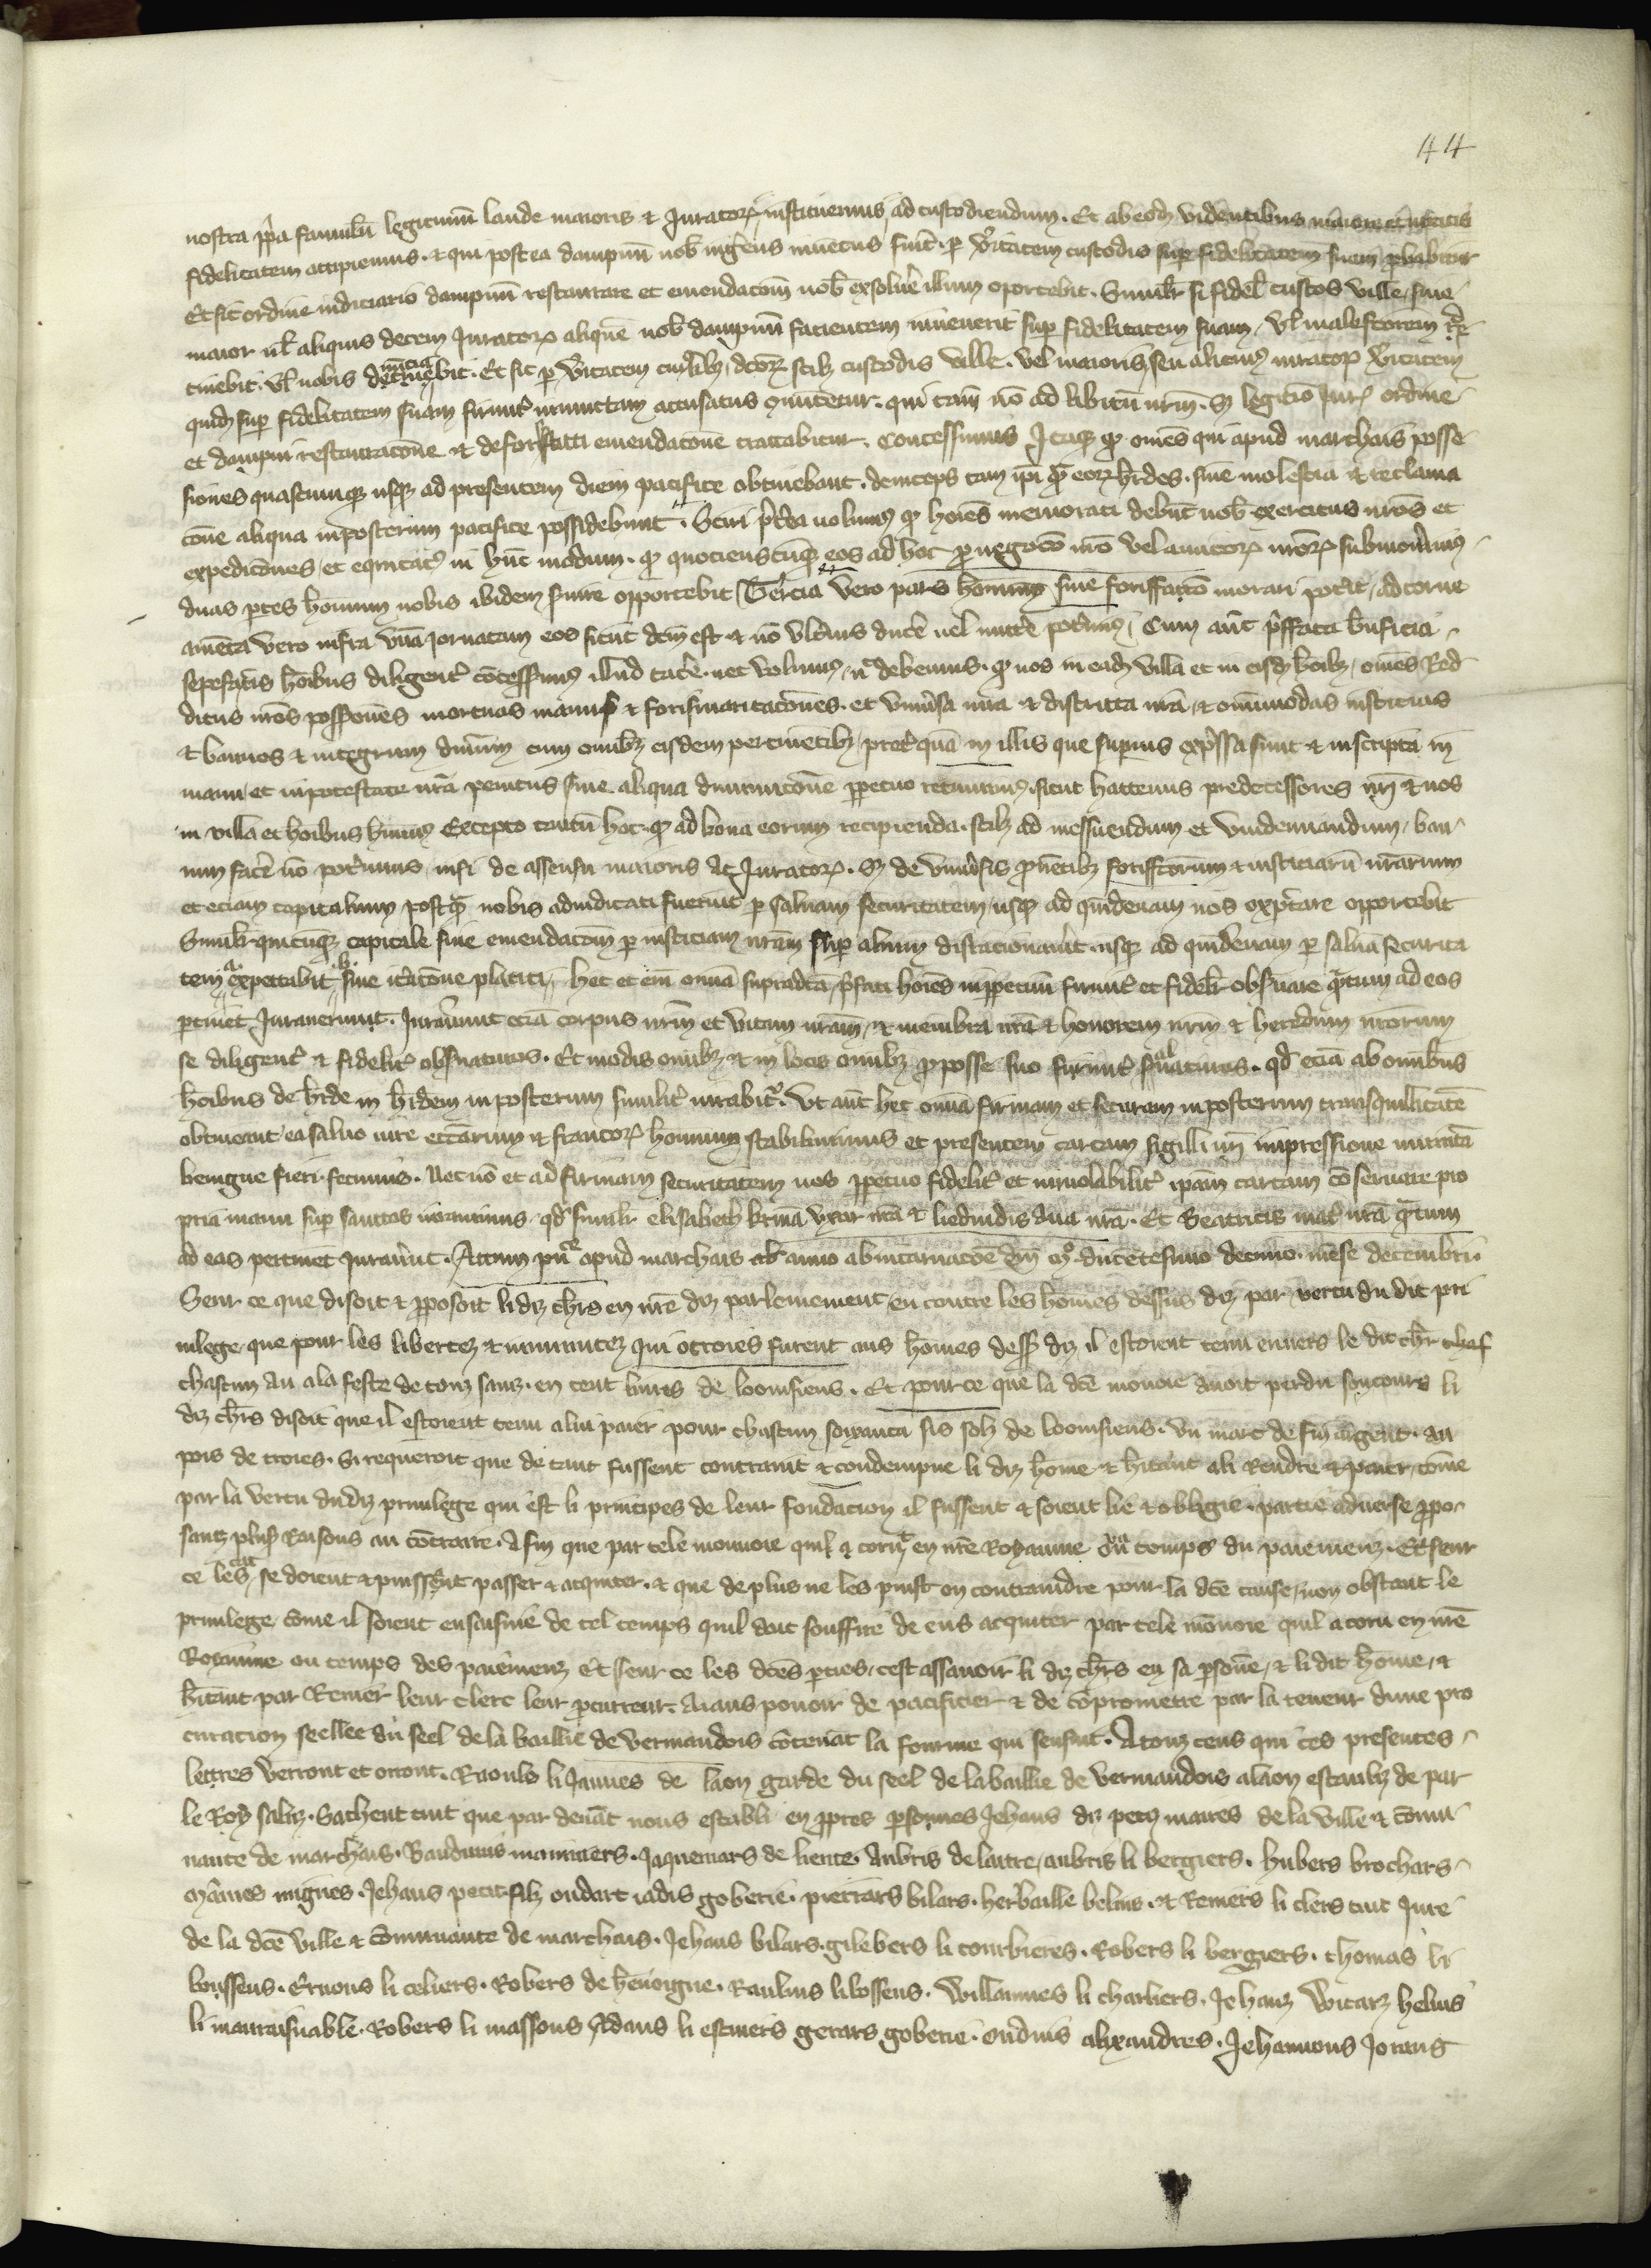 44
nostra ppa famulū legitimū laude maioris et Juratoꝝ instituemus ad custodiendum. Et ab eodē videntibus maiore et Juratis
fidelitatem accipiemus. et qui postea dampnū nob ingerens inuentus fuit. p veritatem custodis sup fidelitatem suam probabitur
Et sic ordine iudiciario dampnū restaurare et emendacōm nob exsoluere illum oportebit. Similr si fidel custos ville, siue
maior ul aliquis decem Juratoꝝ aliquē nob dampnū facientem inuenerit sup fidelitatem suam, vl malefactorem re
tinebit. vl nobis nunciabit. Et sic p veritatem dcōꝝ scilz custodis ville. vel maioris, seu alicuius iuratoꝝ veritatem
quidē sup fidelitatem suam accusatus conuincetur. qui tam nō ad libitū nrm. sz legitimo iuris ordine
et dampni restauracōne et de forisfacti emendacōne tractabitur. Concessimus Itaqz qp omēs qui apud marchais posse
siones quascumqz usqz ad presentem diem pacifice obtinebant. deinceps tam ipi qm eoꝝ hrdes. sine molestia et reclama
cōne aliqua in posterum pacifice possidebunt. Sciri ptea uolum9 qp hoiēs memorati debūt nob exercitus nrōs et
expedicōnes, et equitat9 in hūc modum. qp quocienscūqz eos ad hoc p negocō nrō vel amicoꝝ nrōꝝ submouerim9
duas ptes hominum nobis ibidem seruire opportebit Tercia vero pars hominum sine foriffacto morari potit, ad torne
amēta vero infra vnā iornatam eos sicut dcm est et nō vlterius ducē uel mittē poterim9, Cum aut pffata bnficia
sepefatis hōibus diligent concessim9 illud tacē. nec volum9, nc debemus. qp nos in eadē villa et in eisdē hōibz, omēs Red
ditus nrōs possiones mortuas manus et forismaritacōnes. et vniuersa iura et districta nrā, et omimodas iusticias
et bannos et integrum dnium cum omibz eisdem pertinētibz, preter quā in illis que superius expressa sunt et inscripta in
manu, et in potestate nrā penitus sine aliqua diminucōne ppetuo retinemus, sicut hactenus predecessores nri et nos
in villa et hōibus habuim9 Excepto tantū hoc. qp ad bona eorum recipienda. scilz ad messuendum et vindemiandum, ban
num facē nō poterimus, nisi de assensu maioris ac Juratoꝝ. Sz de vniuersis puentibz foriffactorum et iusticiarū nrarum
et eciam capitalium postqm nobis adiudicati fuerint p saluam securitatem, usqz ad quidenam nos expectare opportebit
Similr quicūqz capitale siue emendacōm p iusticiam nram sup alium disracionauerit usqz ad quindenam p saluā securita
tem expectabit sine iteracōne placiti. hec et cū omia supradcā, pfati hoiēs in ppetuū firmit et fidelr obseruare qntum ad eos
ptinet Jurauerunt. Jurauerunt eciā corpus nrm et vitam nram, et membra nrā et honorem nrm et heredum nrorum
se diligent et fidelit obseruaturos. Et modis omibz et in locis omibz pro posse suo firmit seruaturos. qd eciā ab omnibus
hōibus de hrde in hrdem in posterum similit iurabitr. Vt aut hec omia firmam et securam in posterum tranquilitatē
obtineant, ea saluo iure ecctārum et francoꝝ hominum stabiliuimus et presentem cartam sigilli nri impressione munitā
benigne fieri fecimus. Necnō et ad firmam securitatem nos ppetuo fidelit et inuiolabilit ipam cartam cōseruare pro
pria manu sup sanctos iurauimus, qd similr elisabeth vxor nra et liedindis dna nra. Et Beatricis mat nra qntum
ad eas pertinet Jurauerūt. Actum apud marchais anno ab incarnacōe dni mo. ducētesimo decimo. mēse decembri.
Seur ce que disoit et pposoit li diz chrs en nrē diz parlemement, en contre les hōmes dessus diz par vertu du dit pri
uilege, que pour les libertez et immunitez qui ottroies furent aus hōmes dess diz il estoient tenu enuers le dit chr chas
chascun an ala feste de touz sanz. en cent liures de loonisiens. Et pour ce que la dcē monoie auoit perdu son cours li
diz chrs disoit que il estoient tenu alui paier pour chascun soixanta sis solz de loonisiens. vn marc de fin argent. au
pois de troies. Si requeroit que de tant fussent contraint et condempne li diz hōme et hitāut ali Rendre et paier, cōme
par la vertu dudiz priuilege qui est li principes de leur fondacion il fussent et soient lie et obligie. partie aduerse ppo
sanz plus Raisons au cōtraire. Afin que par tele monnoie quil a coru en nrē Royaume ou temps du paiemenz. Et seur
ce les se doient et puissent passer et acquiter. et que de plus ne les puist on contraindre pour la dcē cause, non obstant le
priuilege, cōme il soient en saisine de tel temps quil doit souffire de eus acquiter par tele mōnoie quil a coru en nrē
Royaume ou temps des paiemenz Et seur ce les dcēs pties, cest assauoir li diz chrs en sa psōne, et li dit hōme, et
hitāut par Renier leur clerc leur pcurreur. Aiaus pouoir de pacifier et de cōprometre par la teneur dune pro
curacion seellee du seel de la baillie de vermandois cōtenāt la fourme qui sensuit. A touz ceus qui ces presentes
lettres verront et orront. Raouls li Jannes de laon garde du seel de labaillie de vermandois alaon establiz de par
le Roy saluz. Sachent tuit que par deuāt nous establi en ppres psonnes Jehans diz petiz maires de la ville et cōmu
naute de marchais. Bauduins mannaers. Jaquemars de liente Aubris delattre, aubris li bergiers. hubers brochars
Mānies mignes. Jehans petit filz oudart iadis goberie. pierrars bilars. herbaille belins. et Reniers li clers tuit Jure
de la dcē ville et cōmunaute de marchais. Jehans bilars. gilebers li courbieres. Robers li bergiers. thomas li
boussens. Ernous li celiers. Robers de benoigne. Raulins libossens. Willaumes li charliers. Jehanz Witarz helins
li mauraisnable. Robers li massons Adans li estiniers gerars goberie. oudins alixandres. Jehannons Jorans